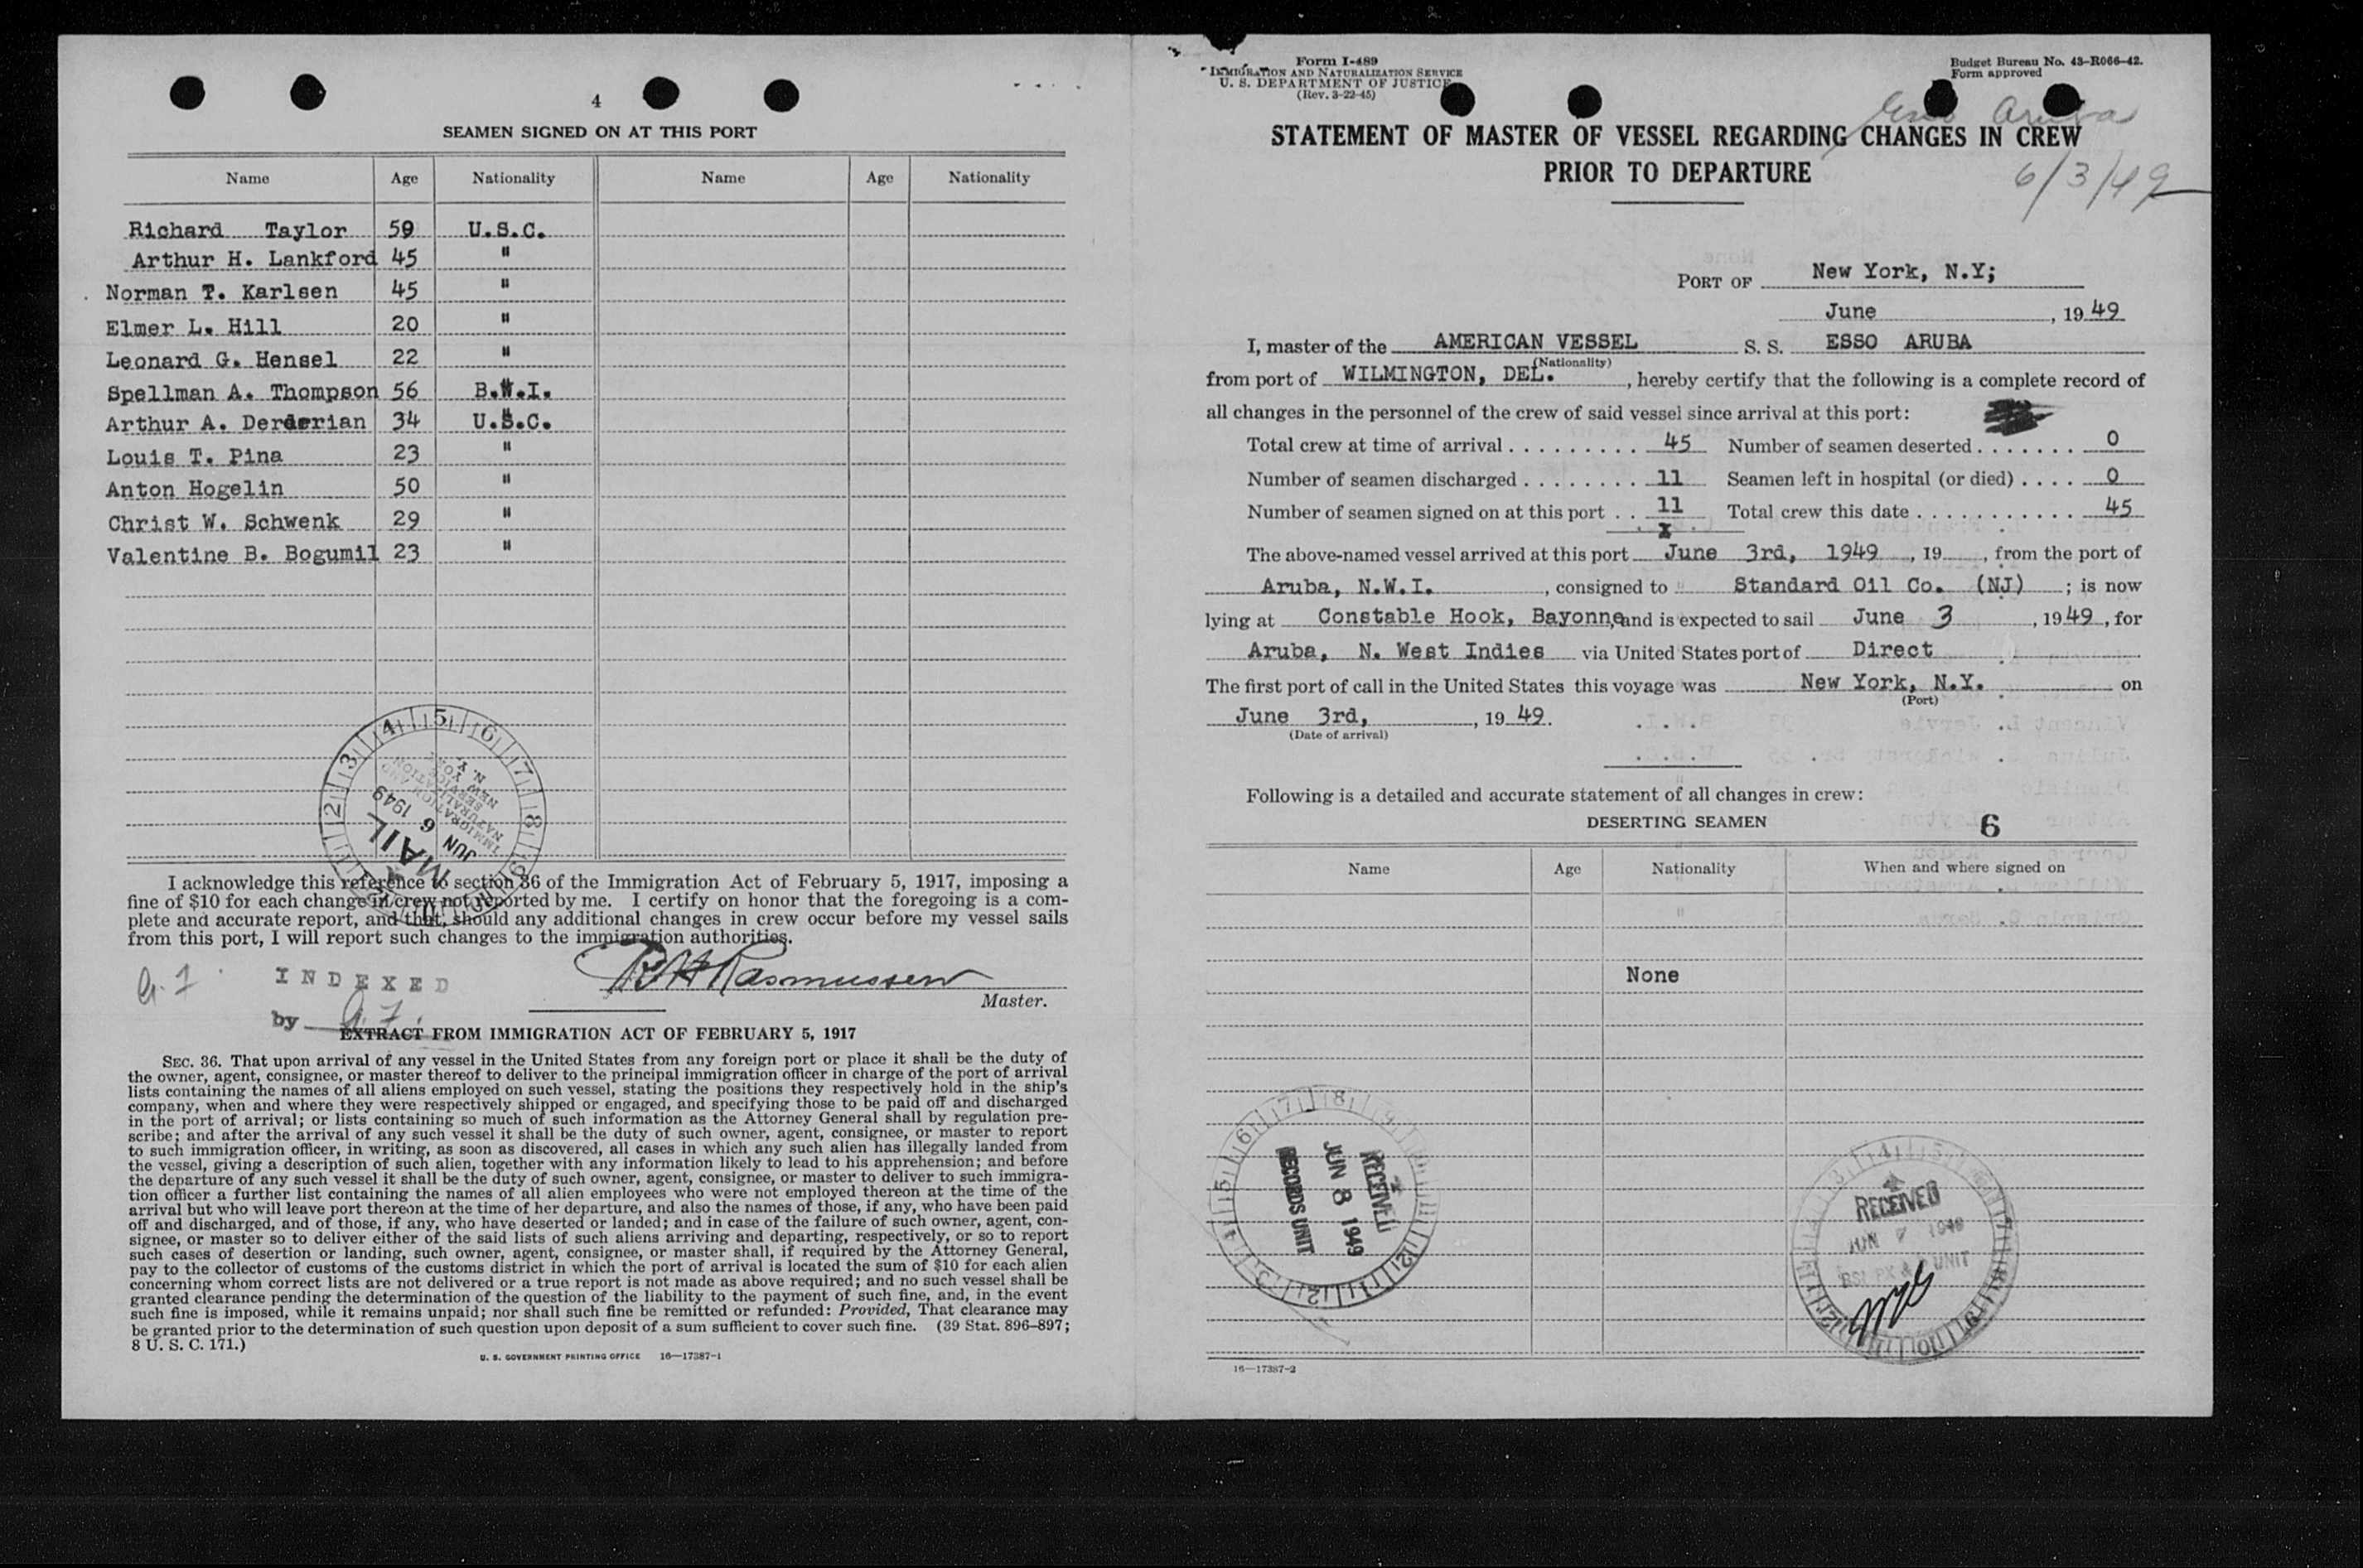 4
SEAMEN SIGNED ON AT THIS PORT
Name Age Nationality Name Age Nationality
Richard Taylor 59 U.S.C.
Arthur H. Lankford 45 "
Norman T. Karlsen 45 "
Elmer L. Hill 20 "
Leonard G. Hensel 22 "
Spellman A. Thompson 56 B.W.I.
Arthur A. Derderian 34 U.S.C.
Louis T. Pina 23 "
Anton Hogelin 50 "
Christ W. Schwenk 29 "
Valentine B. Bogumil 23 "
1 2 3 4 5 6 7 8 9 10 11
IMMIGRATION AND
NATURALIZATION
SERVICE
NEW YORK
N. Y.
JUN 6 1949
MAIL
I acknowledge this reference to section 36 of the Immigration Act of February 5, 1917, imposing a
fine of $10 for each change in crew not reported by me. I certify on honor that the foregoing is a com-
plete and accurate report, and that, should any additional changes in crew occur before my vessel sails
from this port, I will report such changes to the immigration authorities.
R H Rasmussen
Master.
INDEXED
by
EXTRACT FROM IMMIGRATION ACT OF FEBRUARY 5, 1917
SEC. 36. That upon arrival of any vessel in the United States from any foreign port or place it shall be the duty of
the owner, agent, consignee, or master thereof to deliver to the principal immigration officer in charge of the port of arrival
lists containing the names of all aliens employed on such vessel, stating the positions they respectively hold in the ship's
company, when and where they were respectively shipped or engaged, and specifying those to be paid off and discharged
in the port of arrival; or lists containing so much of such information as the Attorney General shall by regulation pre-
scribe; and after the arrival of any such vessel it shall be the duty of such owner, agent, consignee, or master to report
to such immigration officer, in writing, as soon as discovered, all cases in which any such alien has illegally landed from
the vessel, giving a description of such alien, together with any information likely to lead to his apprehension; and before
the departure of any such vessel it shall be the duty of such owner, agent, consignee, or master to deliver to such immigra-
tion officer a further list containing the names of all alien employees who were not employed thereon at the time of the
arrival but who will leave port thereon at the time of her departure, and also the names of those, if any, who have been paid
off and discharged, and of those, if any, who have deserted or landed; and in case of the failure of such owner, agent, con-
signee, or master so to deliver either of the said lists of such aliens arriving and departing, respectively, or so to report
such cases of desertion or landing, such owner, agent, consignee, or master shall, if required by the Attorney General,
pay to the collector of customs of the customs district in which the port of arrival is located the sum of $10 for each alien
concerning whom correct lists are not delivered or a true report is not made as above required; and no such vessel shall be
granted clearance pending the determination of the question of the liability to the payment of such fine, and, in the event
such fine is imposed, while it remains unpaid; nor shall such fine be remitted or refunded: Provided, That clearance may
be granted prior to the determination of such question upon deposit of a sum sufficient to cover such fine. (39 Stat. 896–897;
8 U. S. C. 171.)
U. S. GOVERNMENT PRINTING OFFICE 16—17387-1
Form I-489
IMMIGRATION AND NATURALIZATION SERVICE
U. S. DEPARTMENT OF JUSTICE
(Rev. 3-22-45)
Budget Bureau No. 43-R066-42.
Form approved
Esso Aruba
STATEMENT OF MASTER OF VESSEL REGARDING CHANGES IN CREW
PRIOR TO DEPARTURE
6/3/49
PORT OF New York, N.Y;
June , 19 49
I, master of the AMERICAN VESSEL S. S. ESSO ARUBA
(Nationality)
from port of WILMINGTON, DEL. , hereby certify that the following is a complete record of
all changes in the personnel of the crew of said vessel since arrival at this port:
Total crew at time of arrival . . . . . . . . . 45 Number of seamen deserted . . . . . . . 0
Number of seamen discharged . . . . . . . . 11 Seamen left in hospital (or died) . . . . 0
Number of seamen signed on at this port . . 11 Total crew this date . . . . . . . . . . . . 45
x
The above-named vessel arrived at this port June 3rd, 1949 , 19 , from the port of
Aruba, N.W.I. , consigned to Standard Oil Co. (NJ) ; is now
lying at Constable Hook, Bayonne, and is expected to sail June 3 , 19 49 , for
Aruba, N. West Indies via United States port of Direct
The first port of call in the United States this voyage was New York, N.Y. on
(Port)
June 3rd, , 19 49.
(Date of arrival)
Following is a detailed and accurate statement of all changes in crew:
DESERTING SEAMEN 6
Name Age Nationality When and where signed on
None
RECEIVED
JUN 8 1949
RECORDS UNIT
RECEIVED
JUN 7 1949
UNIT
16—17387-2